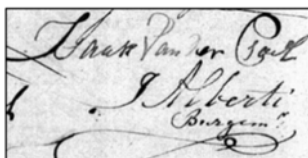 Izaak Van der Poel
J Alberti
Burgemr